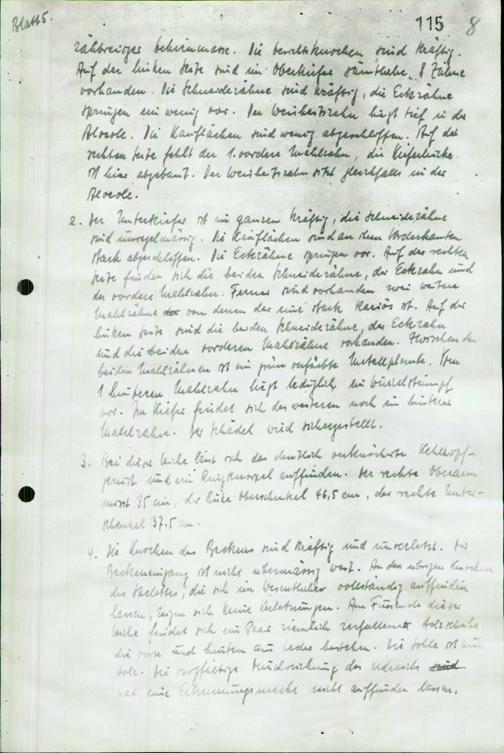 Blatt 5
115 8
zähbreiiger Gehirnmasse. Die Gesichtsknochen sind kräftig.
Auf der linken Seite sind im Oberkiefer sämtliche 8 Zähne
vorhanden. Die Schneidezähne sind kräftig, die Eckzähne
springen ein wenig vor. Der Weisheitszahn liegt tief in der
Alveole. Die Kauflächen sind wenig abgeschliffen. Auf der
rechten Seite fehlt der 1. vordere Mahlzahn, die Kieferlücke
ist hier abgebaut. Der Weisheitszahn sitzt gleichfalls in der
Alveole.
2. Der Unterkiefer ist im ganzen kräftig, die Schneidezähne
sind unregelmässig. Die Kauflächen sind an den Vorderkanten
stark abgeschliffen. Die Eckzähne springen vor. Auf der rechten
Seite finden sich die beiden Schneidezähne, der Eckzahn und
der vordere Mahlzahn. Ferner sind vorhanden zwei weitere
Mahlzähne von denen der eine stark kariös ist. Auf der
linken Seite sind die beiden Schneidezähne, der Eckzahn
und die beiden vorderen Mahlzähne vorhanden. Zwischen den
beiden Mahlzähnen ist ein grün verfärbte Metallplombe. Vom
1. hinteren Mahlzahn liegt lediglich ein Wurzelstumpf
vor. Im Kiefer findet sich des weiteren noch ein hinterer
Mahlzahn. Der Schädel wird sichergestellt.
3. Bei dieser Leiche lässt sich das deutlich verknöcherte Kehlkopf-
gerüst und ein Ringknorpel auffinden. Der rechte Oberarm
misst 35 cm, der linke Oberschenkel 46,5 cm, der rechte Unter-
schenkel 37,5 cm.
4. Die Knochen des Beckens sind kräftig und unverletzt. Der
Beckeneingang ist nicht übermässig weit. An den übrigen Knochen
des Skelettes, die sich im wesentlichen vollständig auffinden
lassen, zeigen sich keine Verletzungen. Am Fussende dieser
Leiche findet sich ein Paar ziemlich zerfallener Holzschuhe
die vorn und hinten aus Leder bestehen. Die Sohle ist aus
Holz. Die sorgfältige Durchsuchung des Erdreichs
hat eine Erkennungsmarke nicht auffinden lassen.